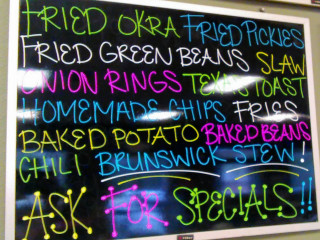 FRIED OKRA FRIED PICKLES
FRIED GREEN BEANS SLAW
ONION RINGS TEXAS TOAST
HOMEMADE CHIPS FRIES
BAKED POTATO BAKED BEANS
CHILI BRUNSWICK STEW!
ASK FOR SPECIALS!!